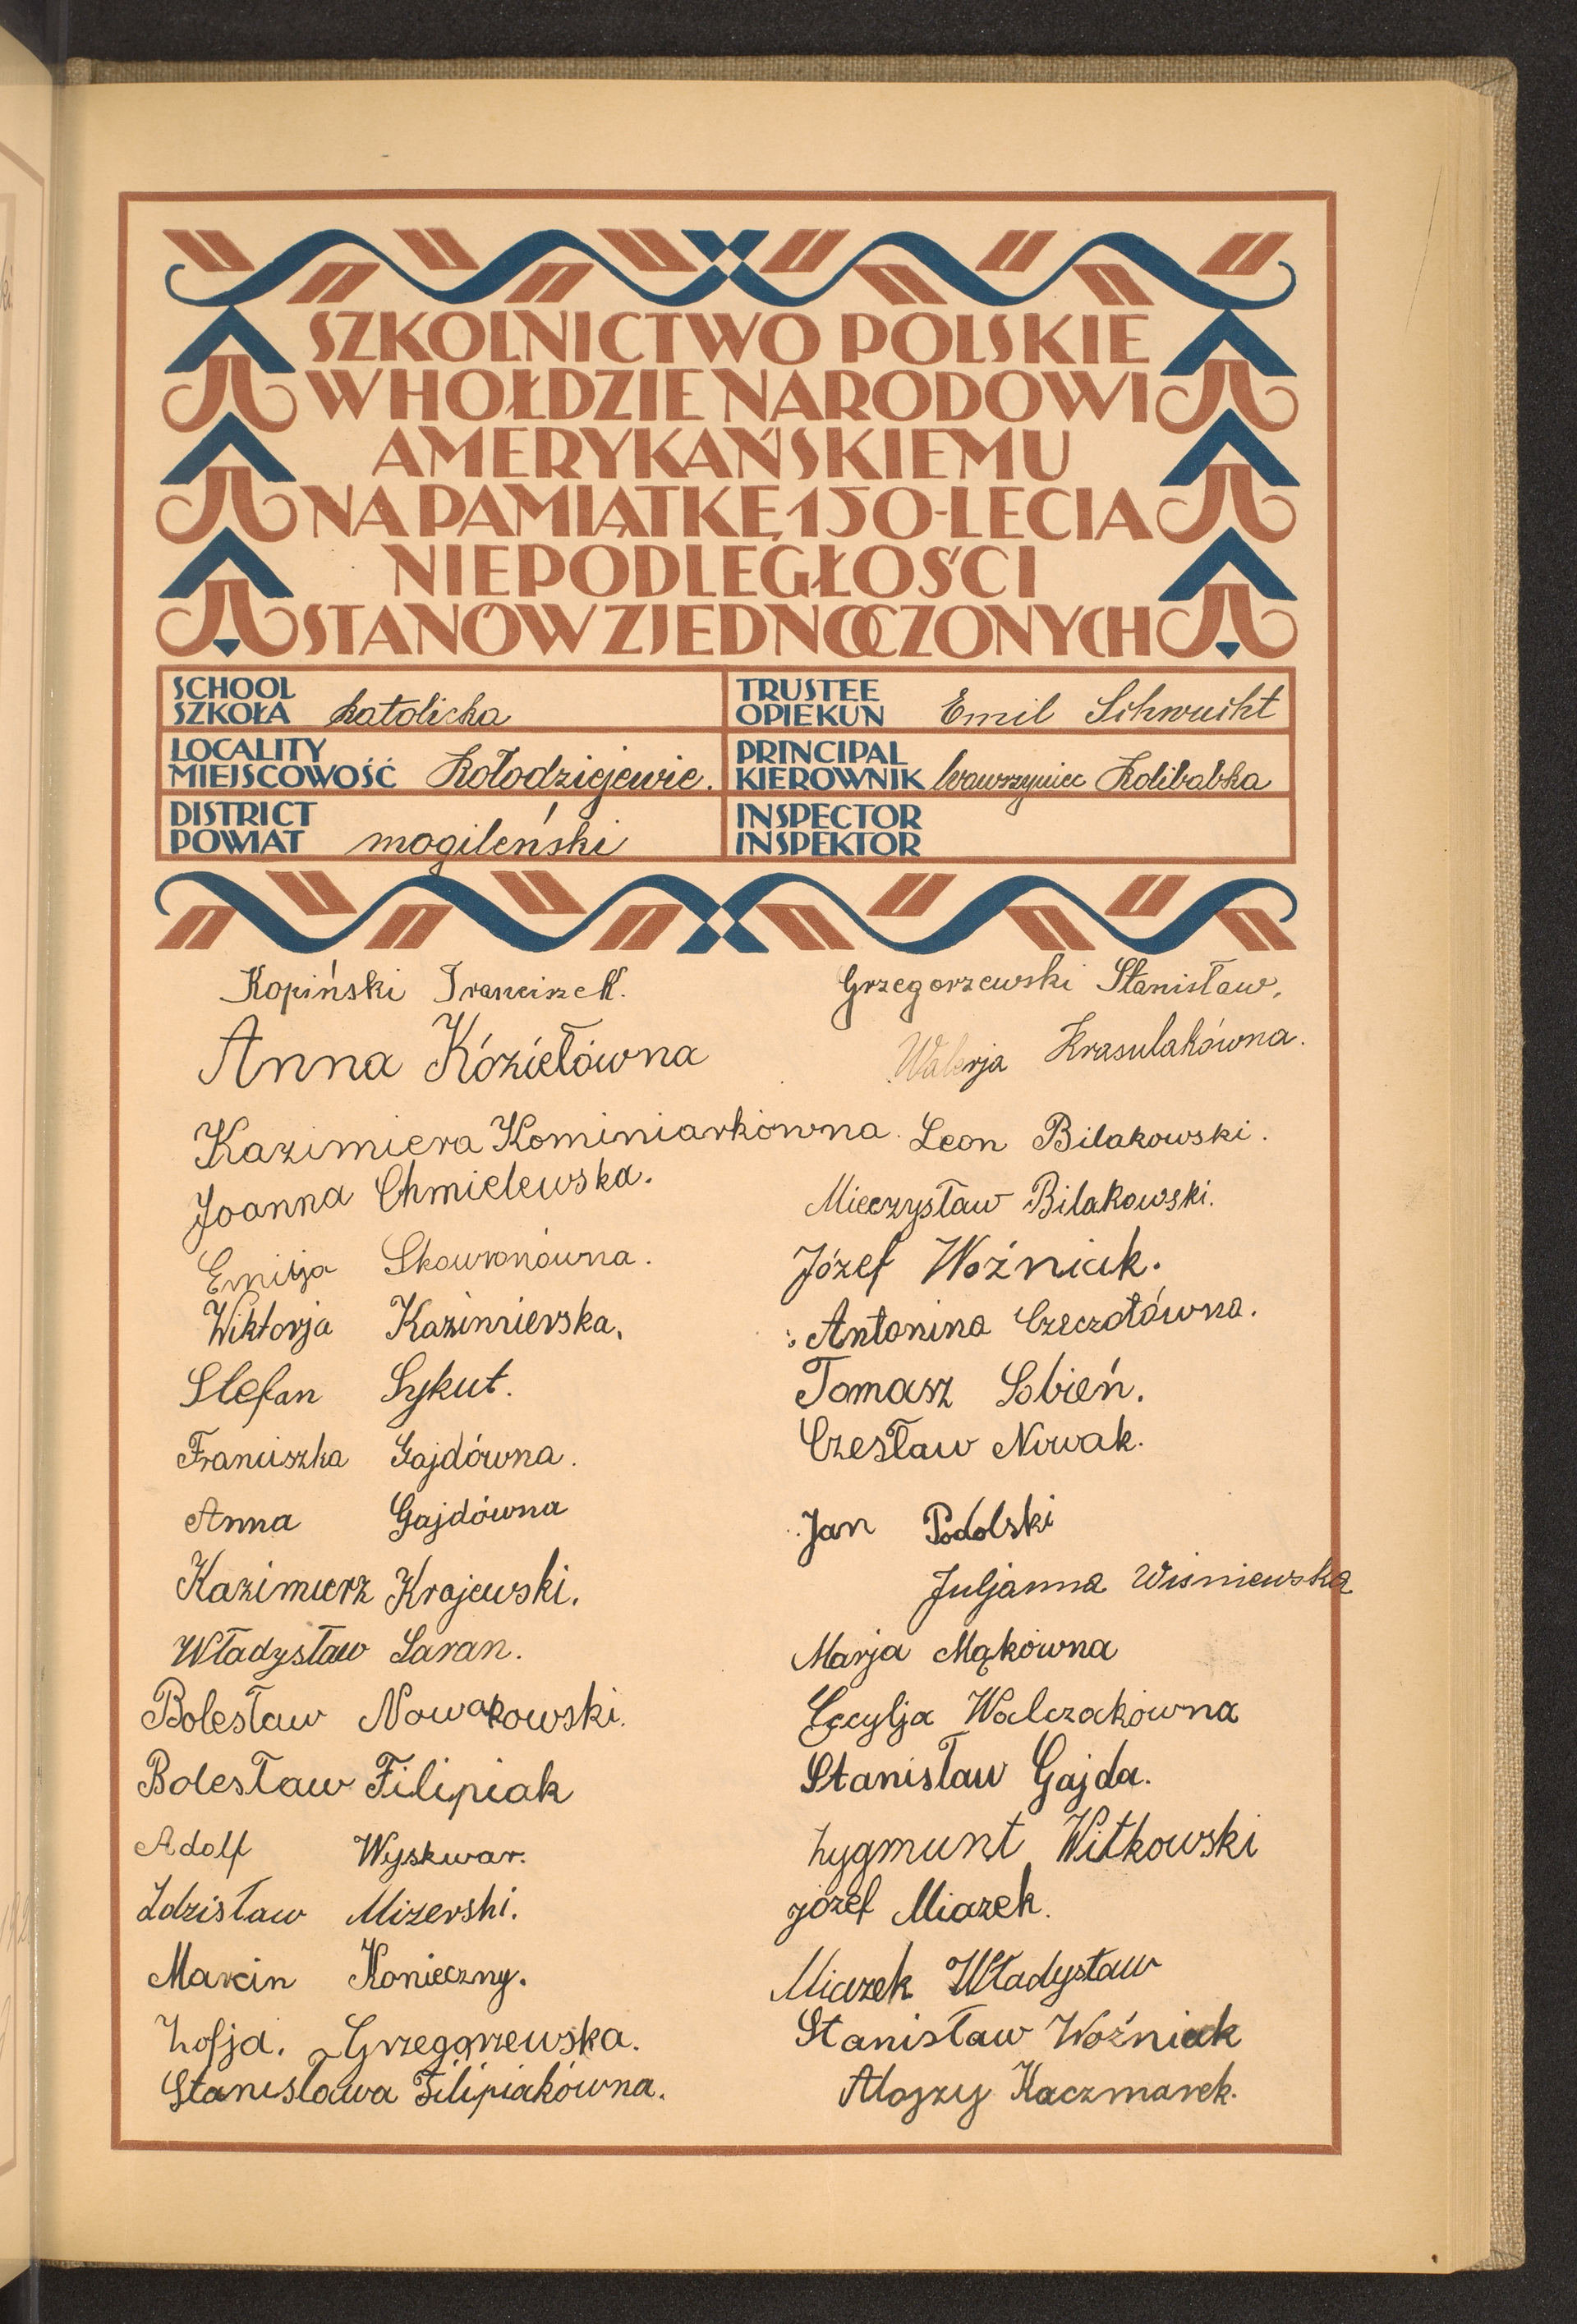 SZKOLNICTWO POLSKIE
W HOŁDZIE NARODOWI
AMERYKAŃSKIEMU
NA PAMIĄTKĘ 150-LECIA
NIEPODLEGŁOŚCI
STANÓW ZJEDNOCZONYCH
SCHOOL
SZKOŁA katolicka
TRUSTEE
OPIEKUN Emil Schwucht
LOCALITY
MIEJSCOWOŚĆ Kołodziejewie.
PRINCIPAL
KIEROWNIK Wawrzyniec Kolibabka
DISTRICT
POWIAT mogileński
INSPECTOR
INSPEKTOR
Kopiński Franciszek.
Anna Kóziełówna
Kazimiera Kominiarkówna.
Joanna Chmielewska.
Emilja Skowronówna.
Wiktorja Kazimierska.
Stefan Sykut.
Franciszka Gajdówna.
Anna Gajdówna
Kazimierz Krajewski.
Władysław Saran.
Bolesław Nowakowski.
Bolesław Filipiak
Adolf Wyskwar.
Zdzisław Mizerski.
Marcin Konieczny.
Zofja. Grzegorzewska.
Stanisława Filipiakówna.
Grzegorzewski Stanisław.
Walerja Krasulakówna.
Leon Bilakowski.
Mieczysław Bilakowski.
Józef Woźniak.
Antonina Czeczotówna.
Tomasz Sobień.
Czesław Nowak.
Jan Podolski
Juljanna Wiśniewska
Marja Mąkówna
Cecylja Walczakówna
Stanisław Gajda.
Zygmunt Witkowski
józef Miazek.
Miazek Władysław
Stanisław Woźniak
Alojzy Kaczmarek.